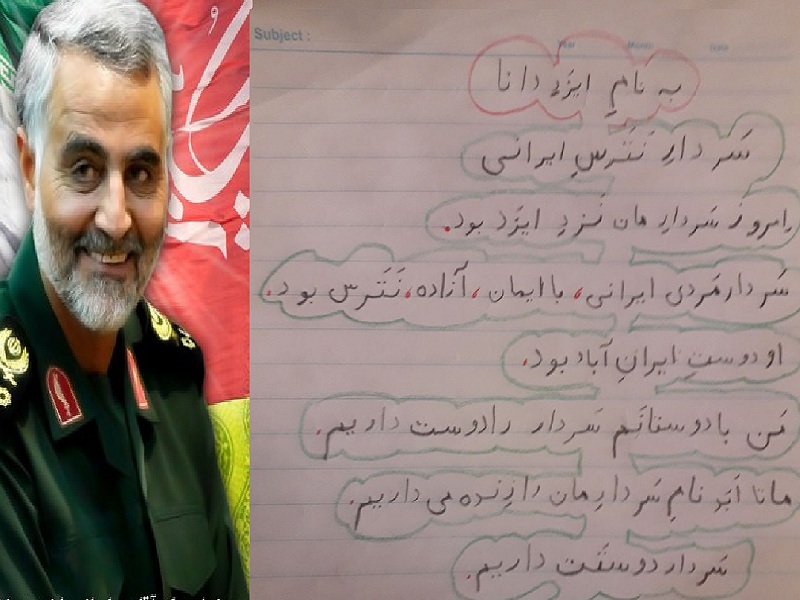 Subject :
به نامِ ایزَدِ دانا
سَردارِ نَتَرسِ ایرانی
اِمروز سَردارِمان نَزدِ ایزَد بود.
سَردار مَردی ایرانی، با ایمان، آزاده، نَتَرس بود.
او دوستِ ایرانِ آباد بود.
مَن با دوستانَم سَردار را دوست داریم.
ما تا اَبَد نامِ سَردارِمان را زِنده می داریم.
سَردار دوستَت داریم.